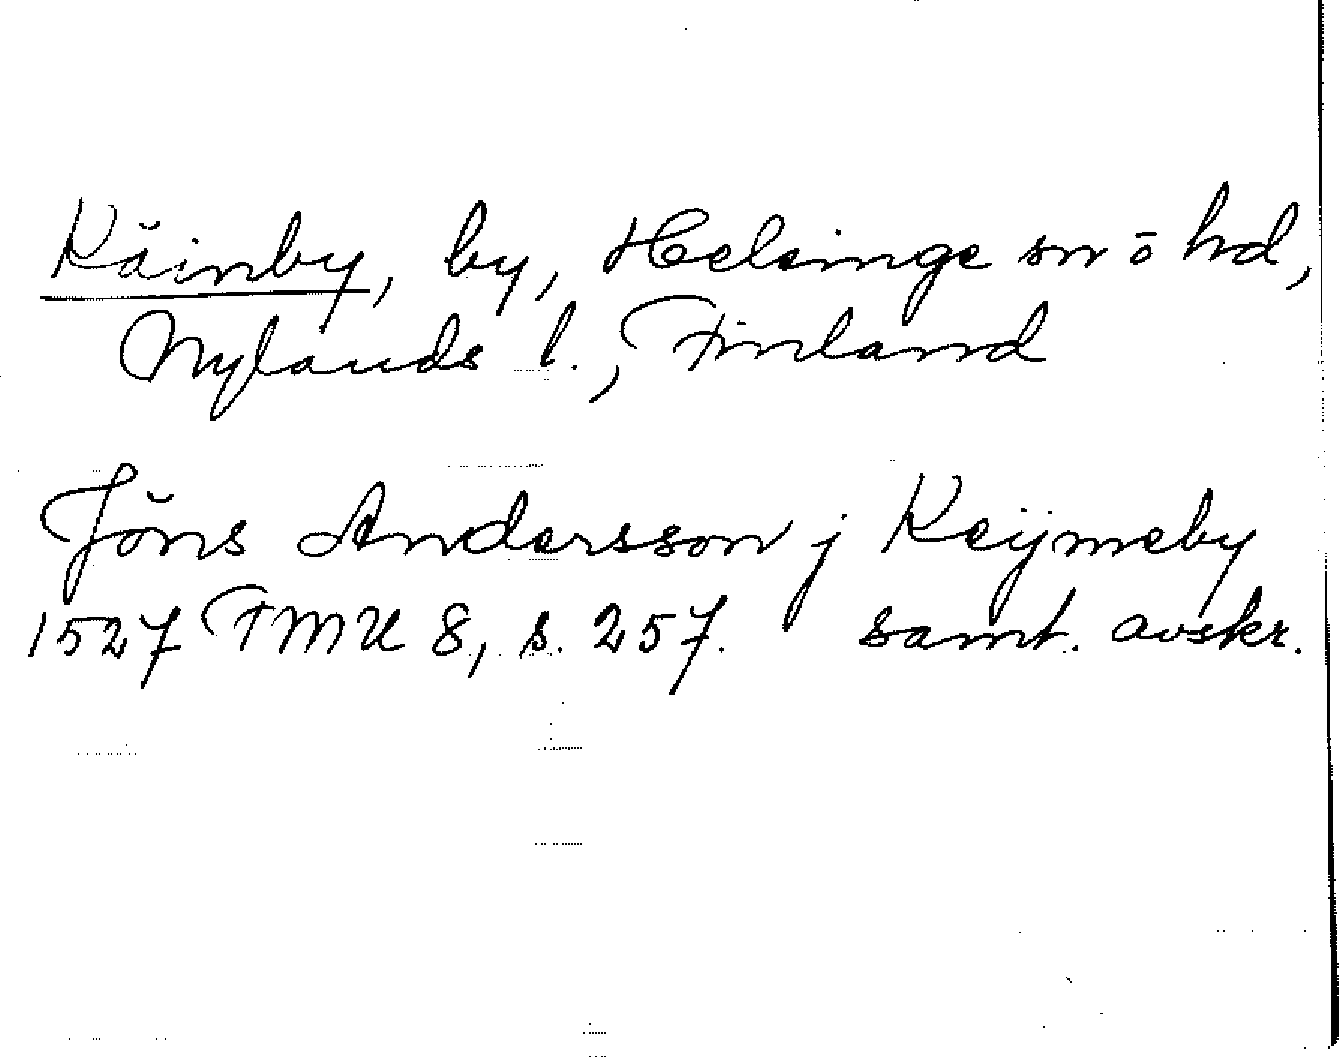 Käinby, by, Helsinge sn o hd,
Nylands l., Finland
Jöns Andersson j Keÿmeby
1527 FMU 8, s. 257. samt. avskr.